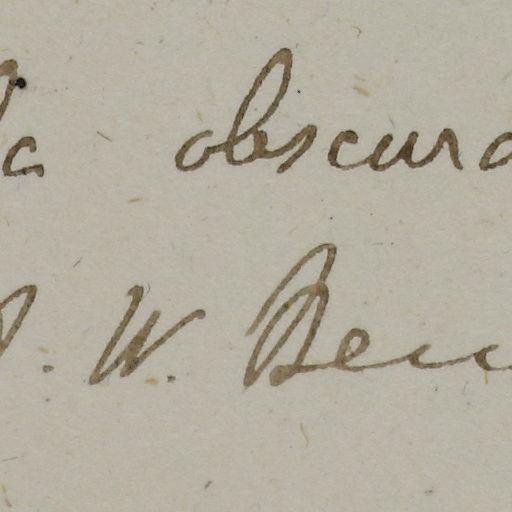 obscura
. W. Ben